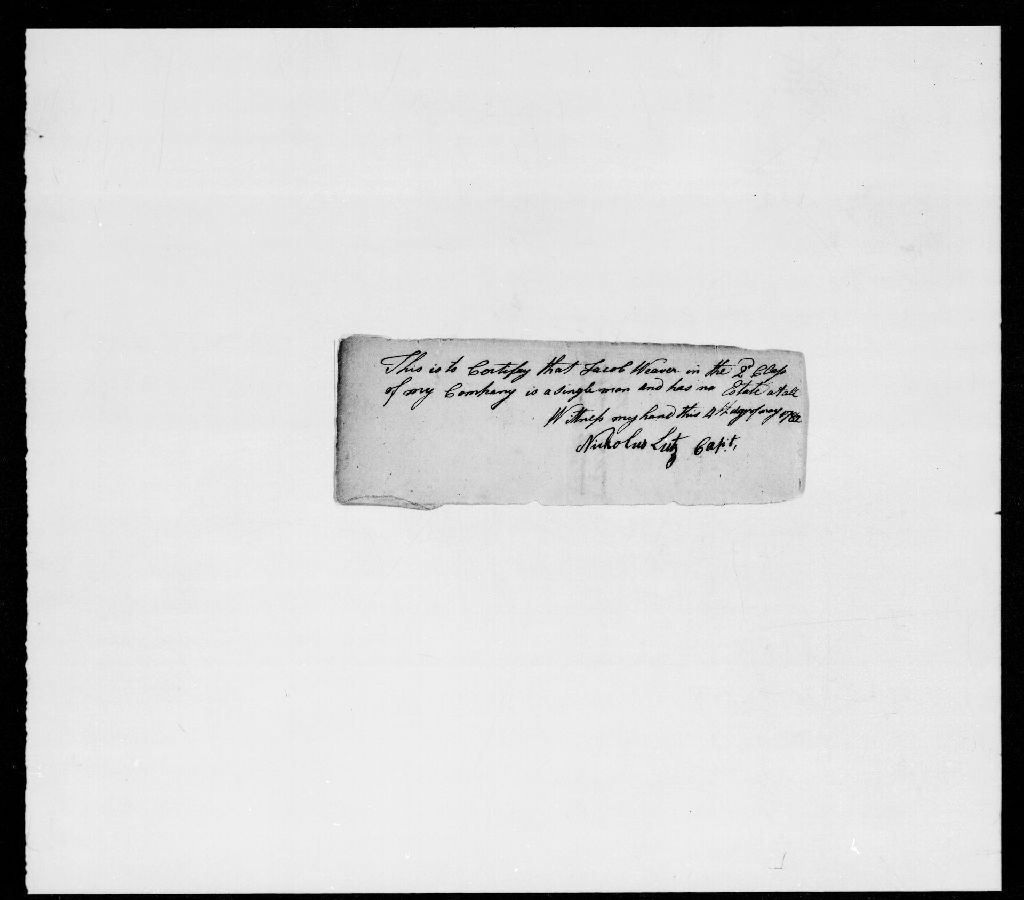 This is to Certify that Jacob Weaver in the 2d Class
of my Company is a single man and has no Estate at all
Wittness my hand this 4th day of may
Nickolus Lutz Capt.